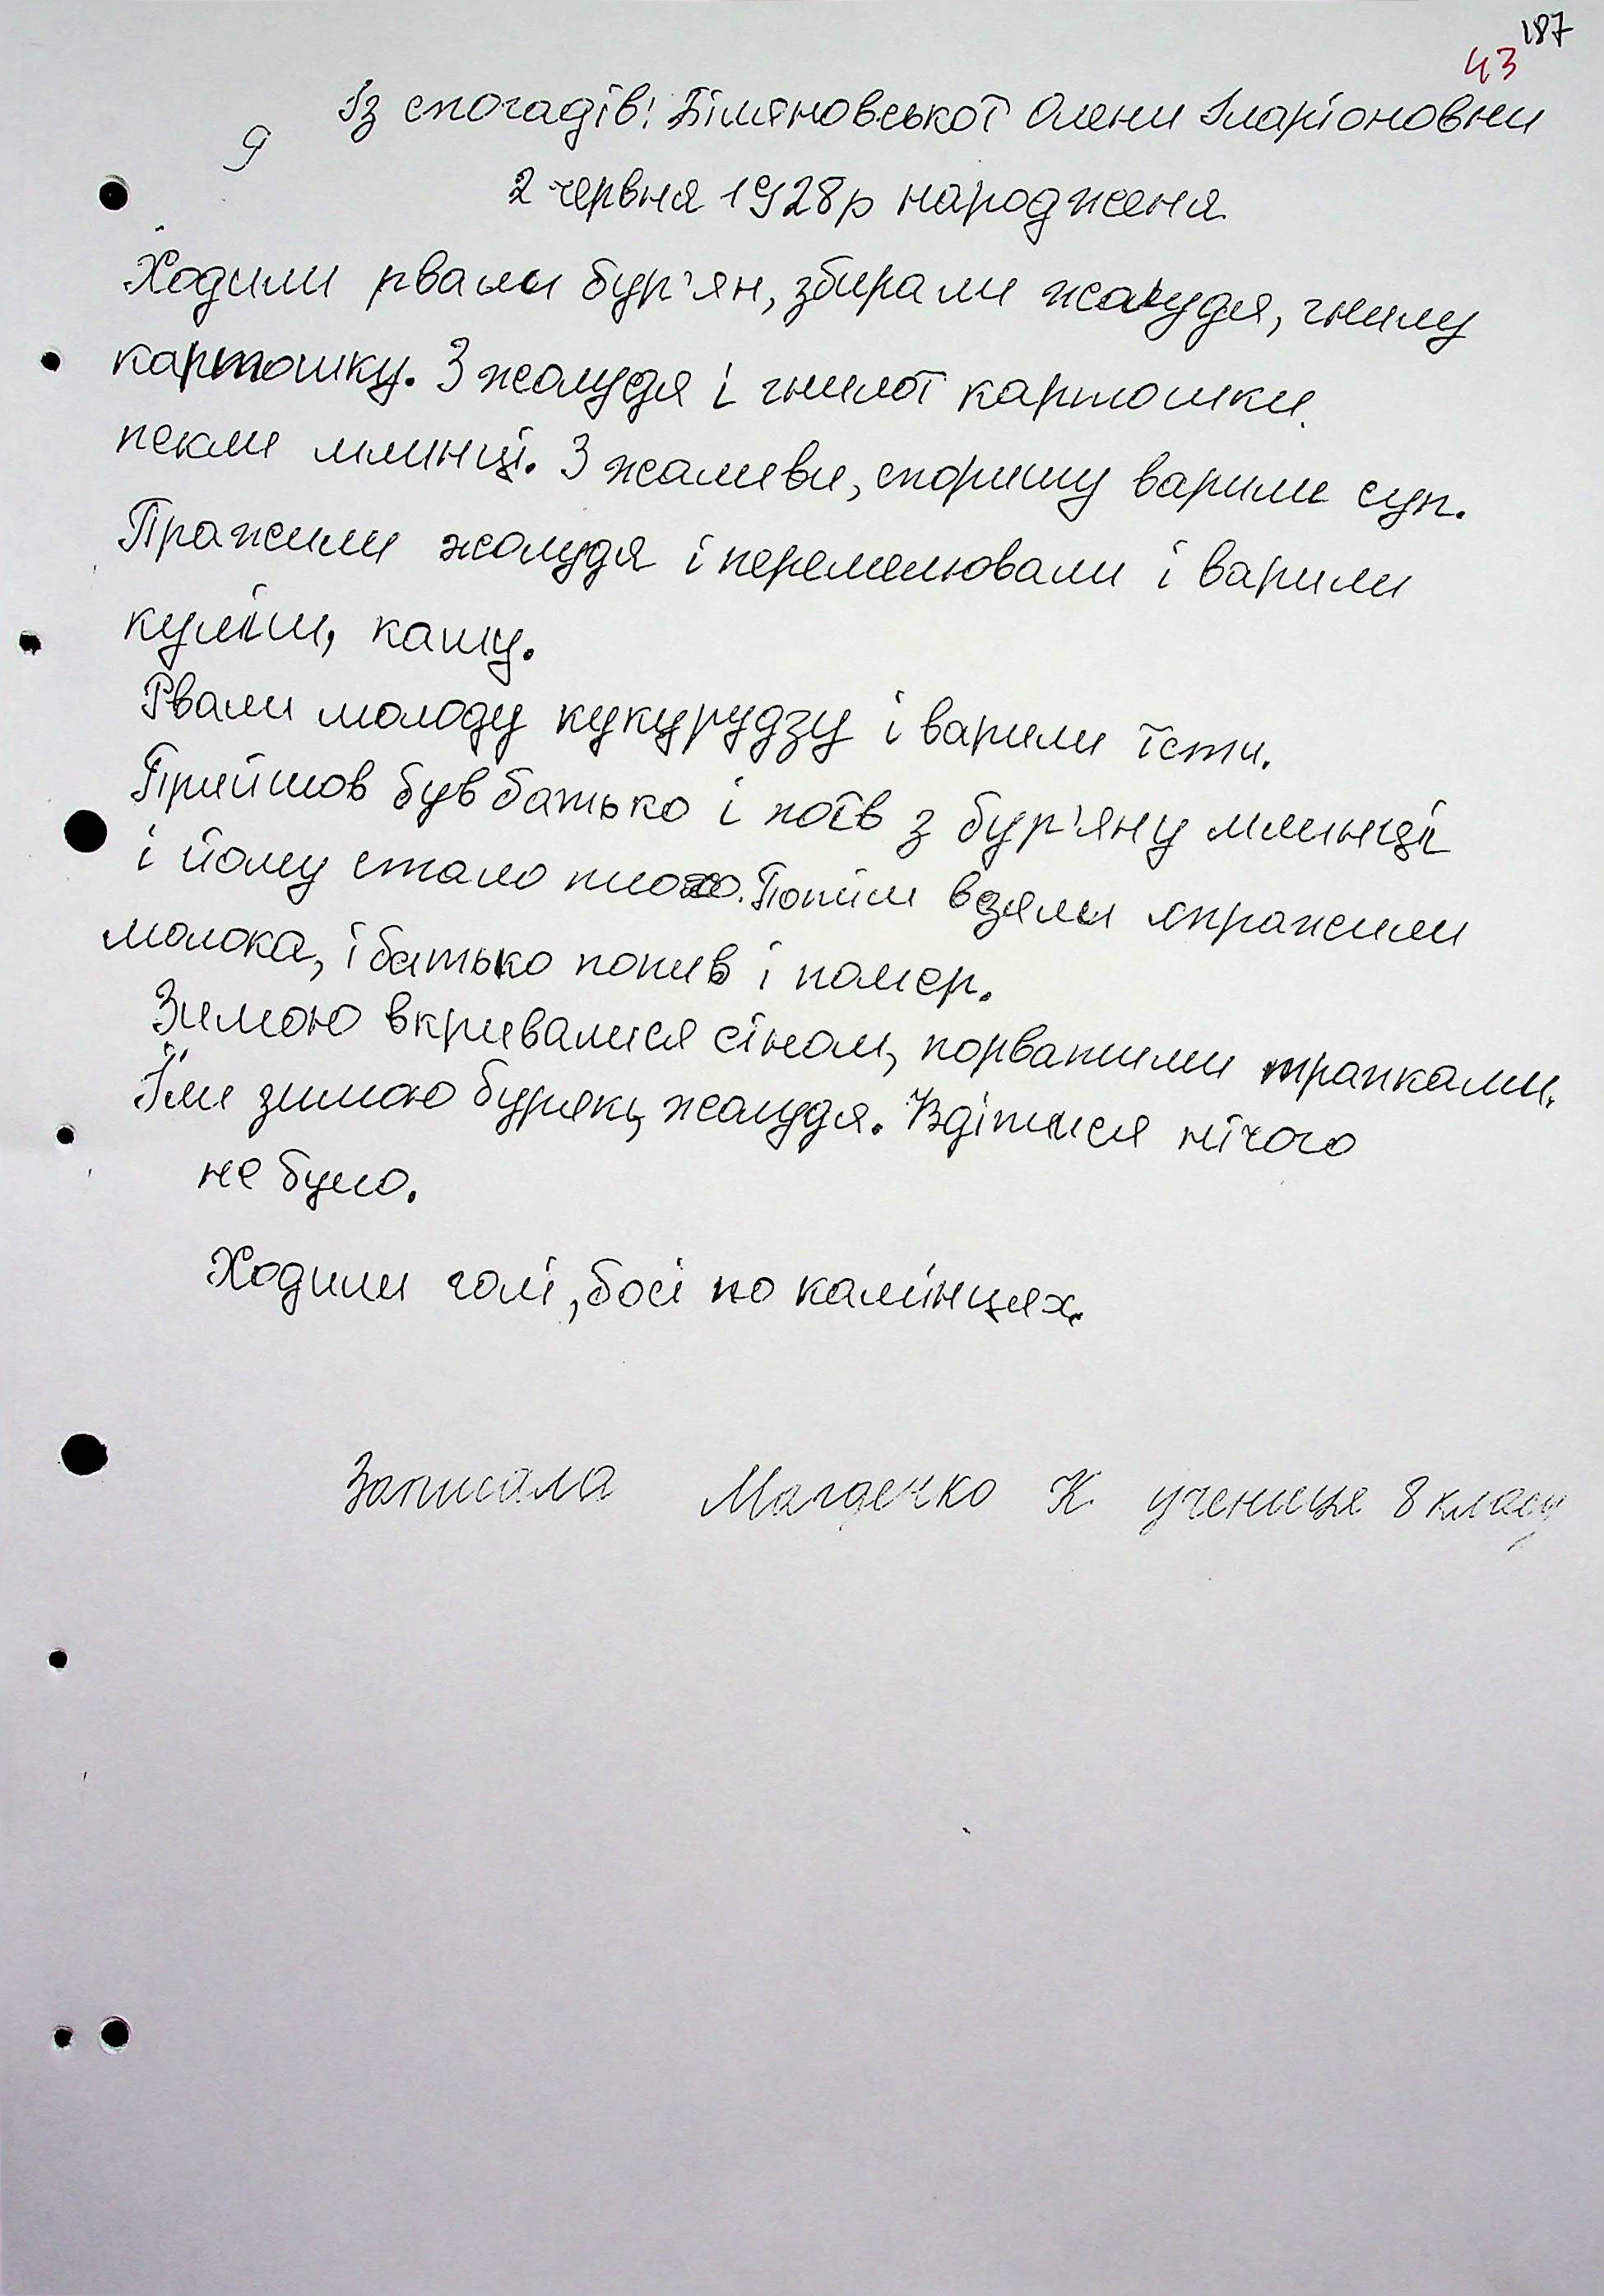 187
43
9
Із спогадів: Біляновської Олени Іларіоновни
2 червня 1928р народженя
Ходили рвали бур'ян, збирали жолудя, гнилу
картошку. З жолудя і гнилої картошки
пекли млинці. З жаливи, споришу варили суп.
Пражили жолудя і перемелювали і варили
куліш, кашу.
Рвали молоду кукурудзу і варили їсти.
Прийшов був батько і поїв з бур'яну млинці
і йому стало плохо. Потім взяли спражили
молока, і батько попив і помер.
Зимою вкривалися сіном, порватими трапками.
Їли зимою буряки, жолудя. Вдітися нічого
не було.
Ходили голі, босі по камінцях.
Записала Магденко К учениця 8 класу